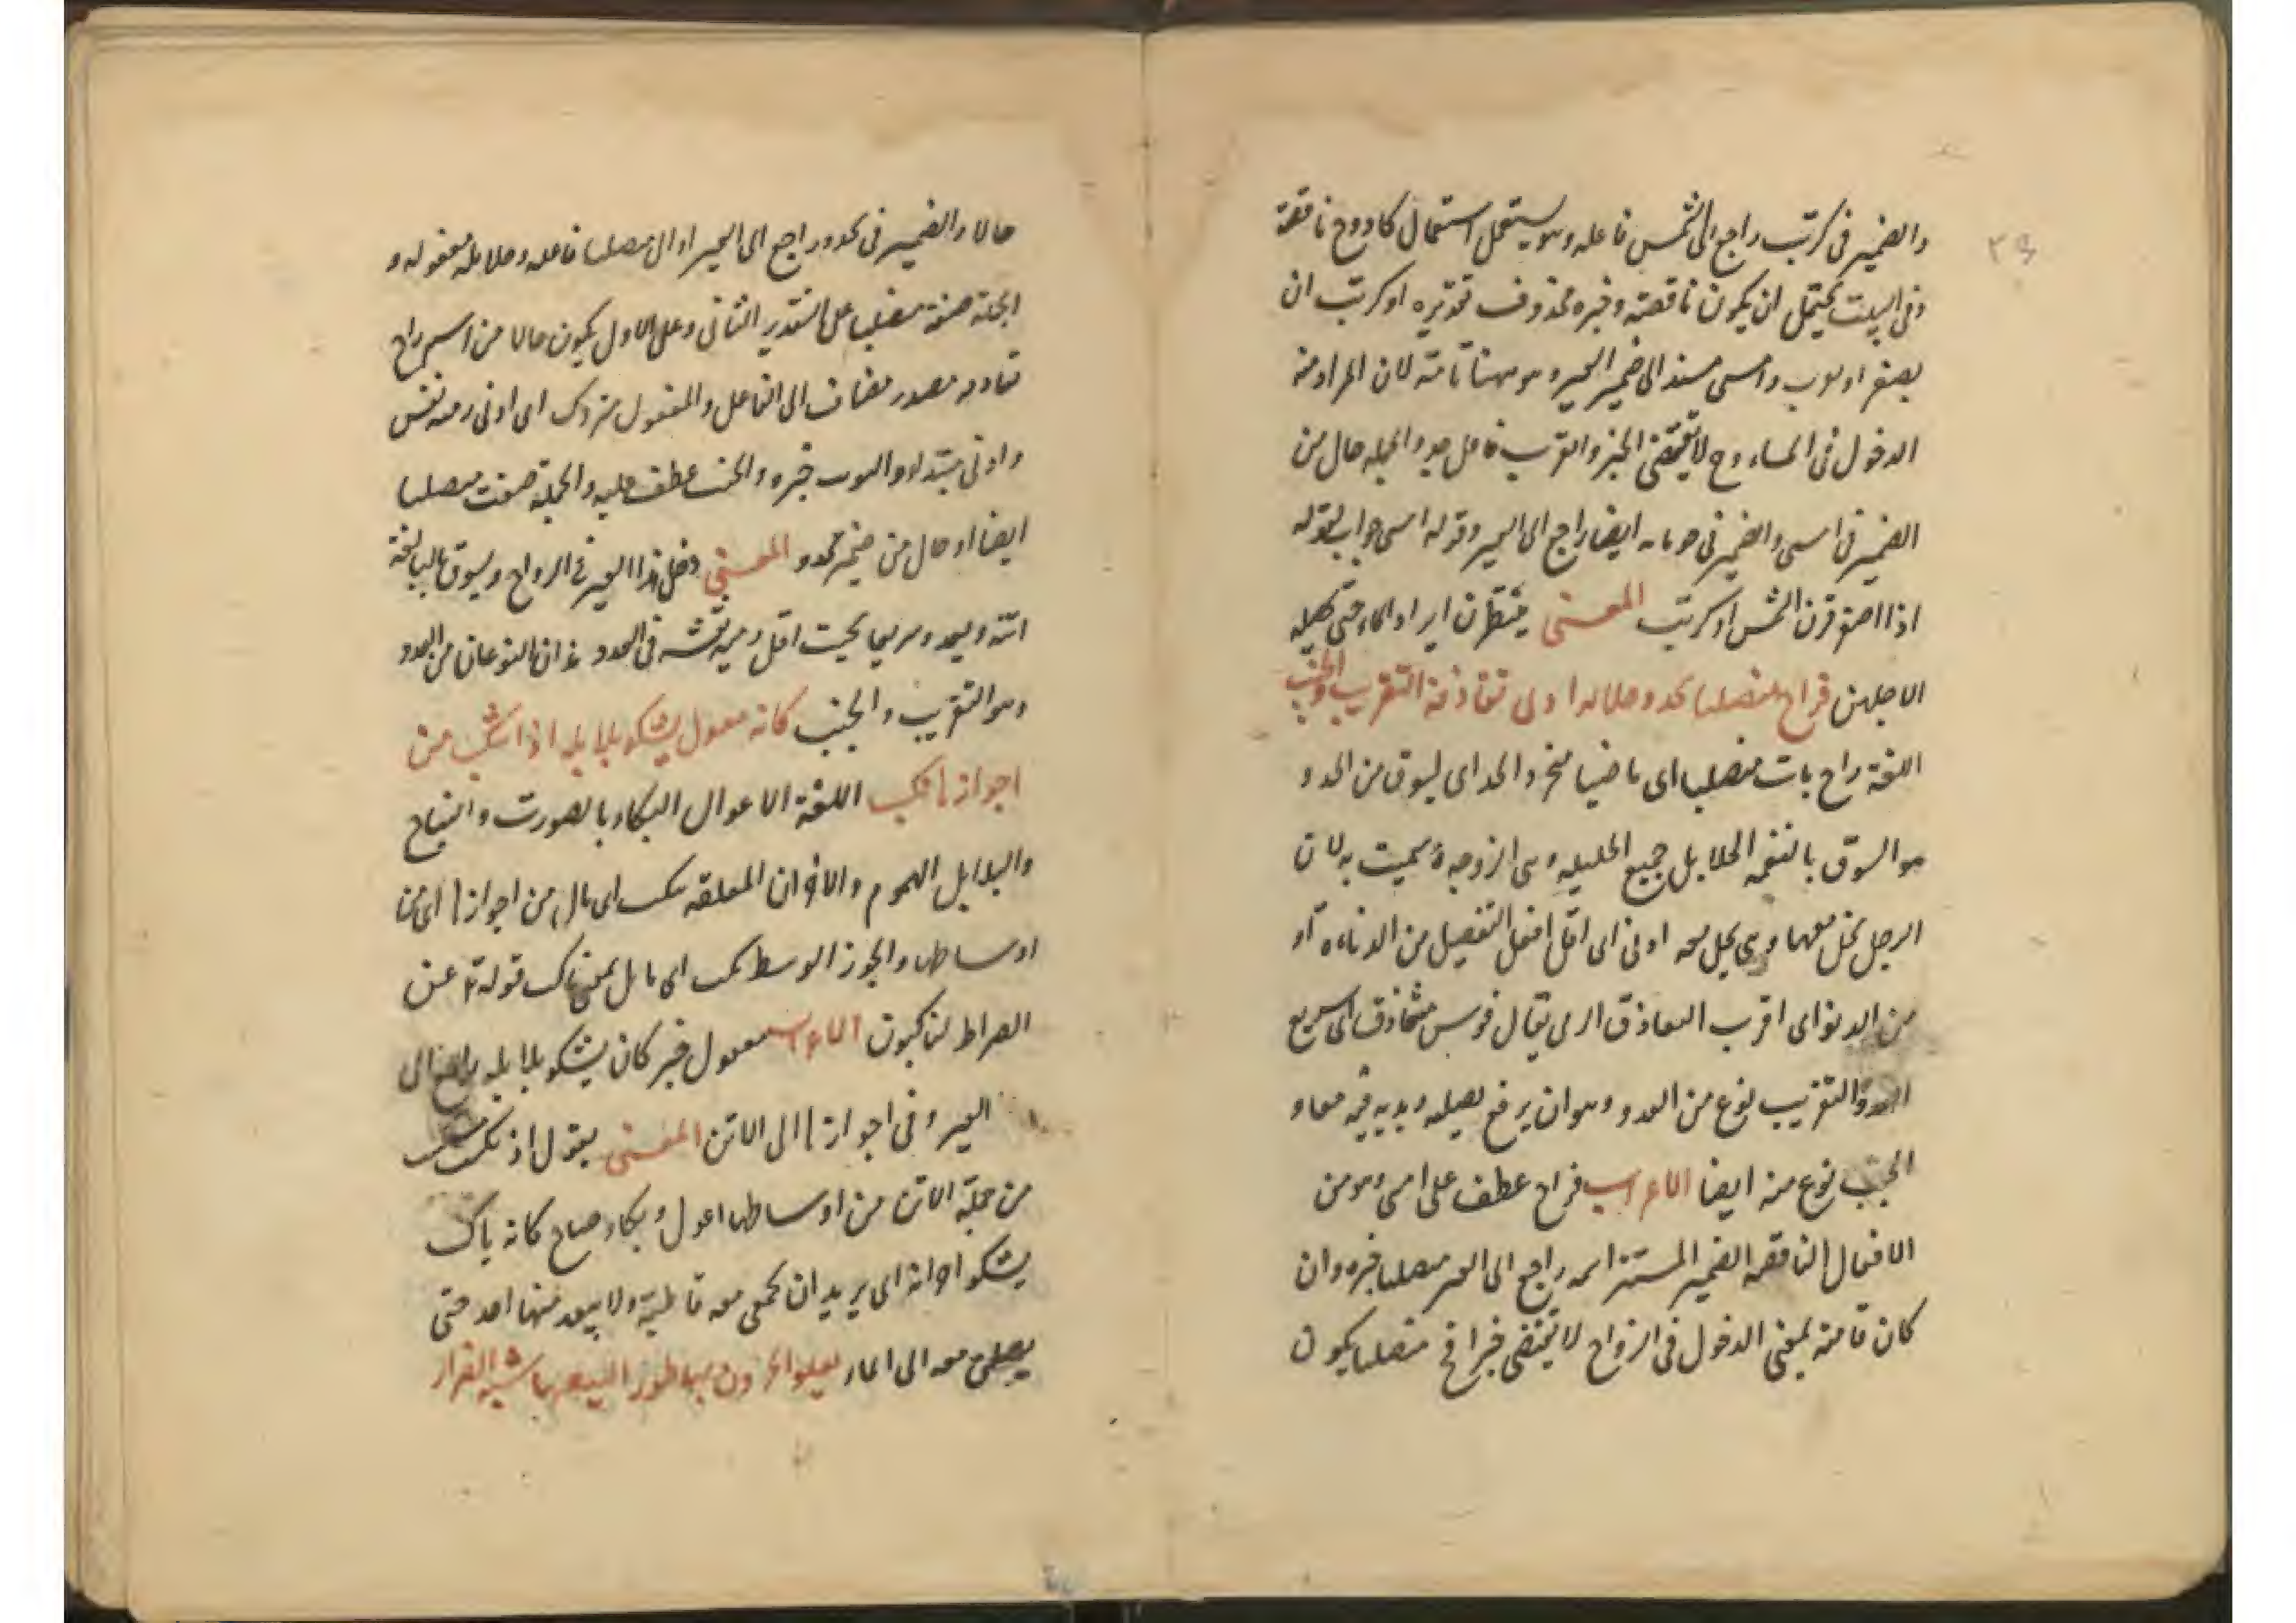 والضمير فى كربت راجع الى الشمس فاعله وهو يستعمل استعمال كاد وح ناقصة
وفى البيت يحتمل ان يكون ناقصة وخبره محذوف تقديره او كربت ان
يصفر او يوب وامسى مسند الى ضمير الحمير وهو مهنا تامة لان المراد منه
الدخول فى المساء وح لا يقتضى الخبر والقرب فاعل جد والجملة حال من
الضمير فى امسى والضمير فى حوبائه ايضا راجع الى العير وقوله امسى جواب لقوله
اذا اصفر قرن الشمس او كربت المعنى ينتظرن ايراد الماء حتى
الاجلهن فراح منصلتا يحدو حلائله ادنى تقاذفه التقريب والخبب
اللغة راح بات منصلتا اى ماضيا منجردا لحد اى ليسوق من الحدو
هو السوق بالنغمه الحلايل جميع الحليله وهى الزوجة سميت به لان
الرجل يحل معها وهى يحل معه ادنى اى اقل افعل التفضيل من الدناءه او
من الدنو اى اقرب التقاذف الرمى يقال فرس متقاذف اى سريع
العدو التقريب نوع من العدو وهو ان يرفع يديه معا و
الخبب نوع منه ايضا الاعراب فراح عطف على امسى وهو من
الافعال الناقصه الضمير المستتر اسمه راجع الى العير منصلتا خبره وان
كان تامة بمعنى الدخول فى الرواح لا يقتضى خبرا فح منصلتا يكون
حالا والضمير فى يحدو راجع الى العير او الى منصلتا فاعله وحلائله مفعوله و
الجملة صفة منصلتا على التقدير الثانى وعلى الاول يكون حالا من اسم راح
تقاذفه مصدر مضاف الى الفاعل والمفعول متروك اى ادنى رميه نفس
وادنى مبتداء والتقريب خبره والخبب عطف عليه والجملة صفت منصلتا
ايضا او حال من ضمير يحدو المعنى دخل هذا العير فى الرواح ويسوق بالمبالغة
اتنه ويعدو سريعا بحيث اقل رميه نفسه فى العدو هذان النوعان من العدو
وهو التقريب والخبب كانه معول يشكو بلابله اذا تنكب من
اجوازها نكب اللغة الاعوال البكاء بالصوت والصياح
والبلابل الهموم والاحزان المعلقه نكب اى مال من اجوازها اى من
اوساطها والجوز الوسط نكب اى مايل بمعنى ناكب قوله تع عن
الصراط لناكبون الاعراب معول خبر كان يشكو بلابله راجع الى
العير وفى اجوازها الى الاتن المعنى يقول اذ نكب
من جملة الاتن من اوساطها اعول وبكاء وصاح كانه باك
يشكو احزانه اى يريد ان يجمعن معه قاطبة ولا يبعد منها احد حتى
يصلن معه الى الماء يعلو الحزون بها طورا ليتعبها شبه الضرار